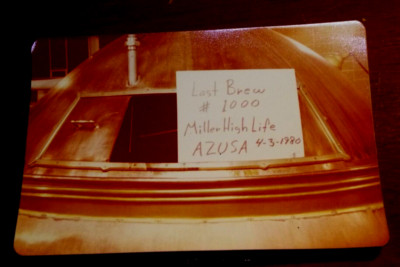 Last Brew
# 1000
Miller High Life
AZUSA 4-3-1980